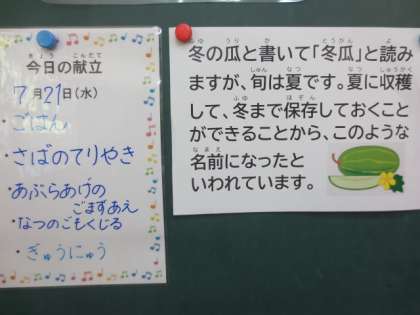 今日の献立
7月21日(水)
・ごはん
・さばのてりやき
・あぶらあげの
ごまずあえ
・なつのごもくじる
・ぎゅうにゅう
冬の瓜と書いて「冬瓜」と読み
ますが、旬は夏です。夏に収穫
して、冬まで保存しておくこと
ができることから、このような
名前になったと
いわれています。